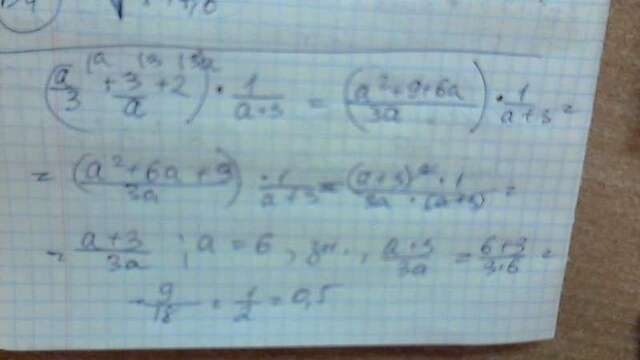 (a/3 + 3/a + 2) · 1/(a+3) = (a²+9+6a)/(3a) · 1/(a+3) =
= (a²+6a+9)/(3a) · 1/(a+3) = (a+3)² · 1/(3a · (a+3)) =
= (a+3)/(3a) ; a = 6, (a+3)/(3a) = (6+3)/(3·6) =
= 9/18 = 1/2 = 0,5